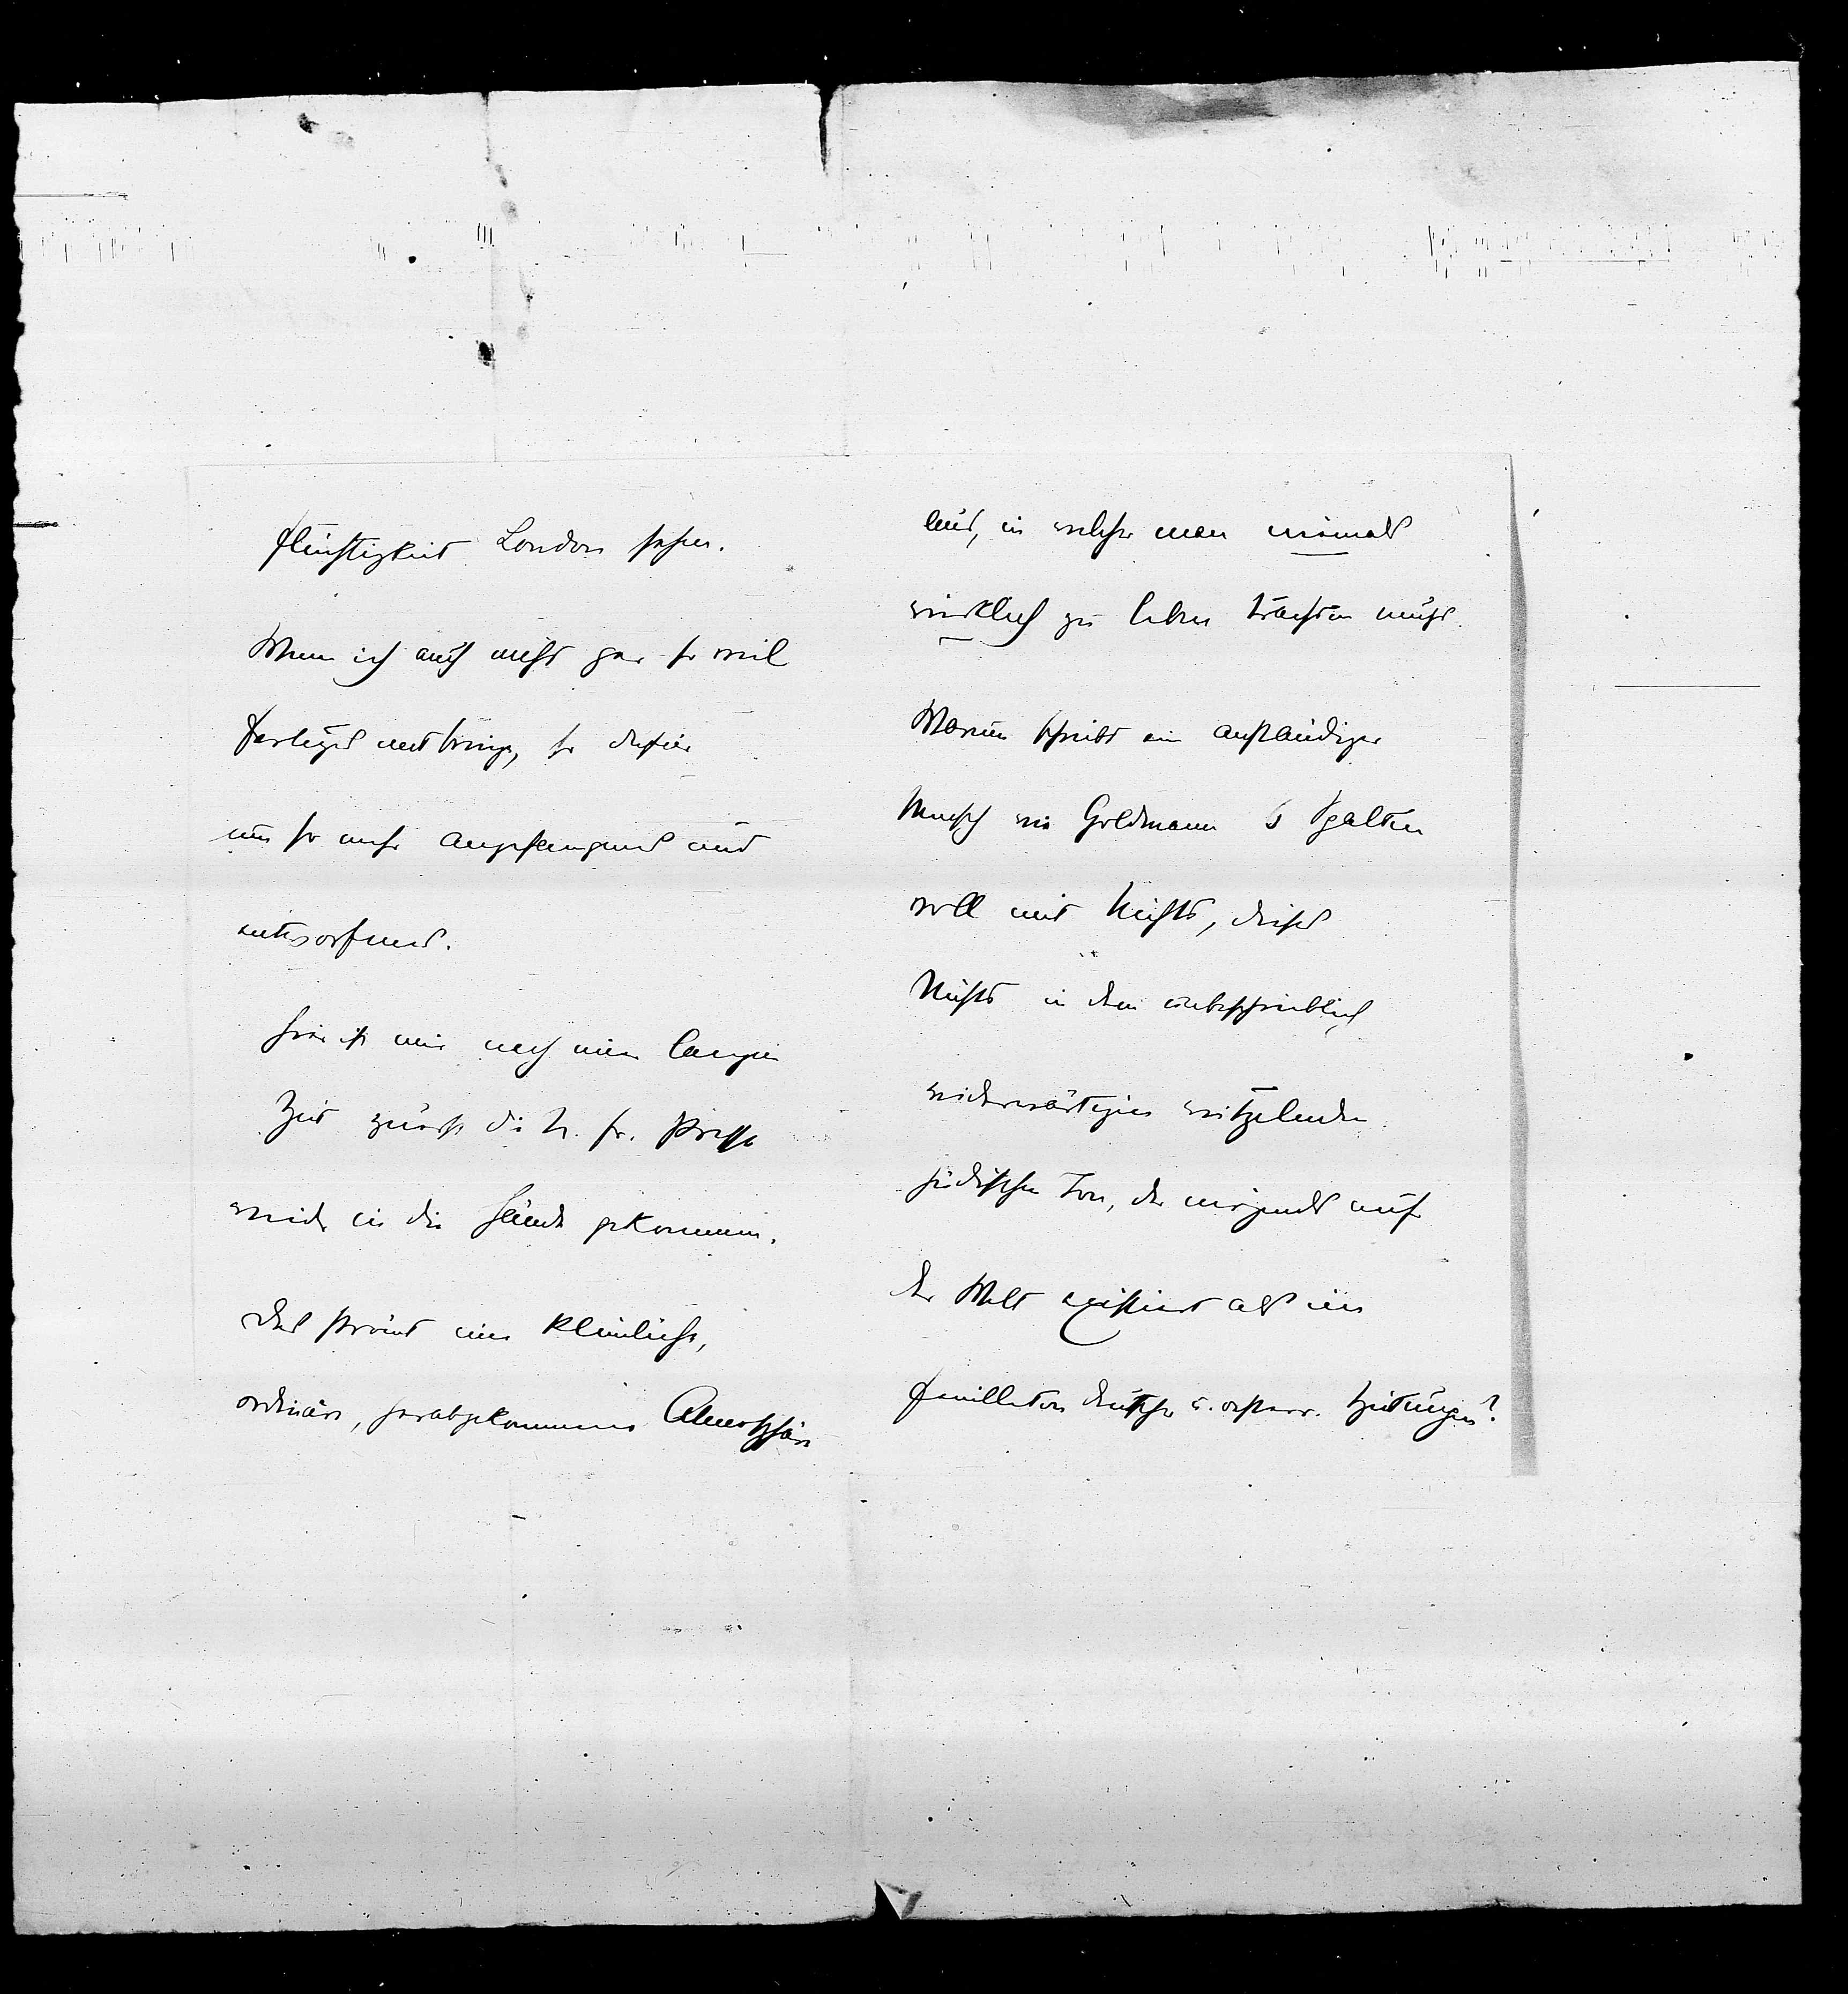 Flüchtigkeit London sehen.
Wenn ich auch nicht gar so viel
Fertiges mitbringe, so dafür
um so mehr Angefangenes und
entworfenes.
Hier ist mir nach einer langen
Zeit zuerst die N. fr. Presse
wieder in die Hände gekommen.
Das strömt eine kleinliche,
ordinäre, herabgekommene Atmosphäre
aus, in welcher man niemals
wirklich zu leben trachten muss.
Warum schreibt ein anständiger
Mensch wie Goldmann 6 Spalten
voll mit Nichts, dieses
Nichts in dem unbeschreiblich
widerwärtigen witzelnden
jüdischen Ton, der nirgends auf
der Welt existiert als im
Feuilleton deutscher u. österr. Zeitungen?